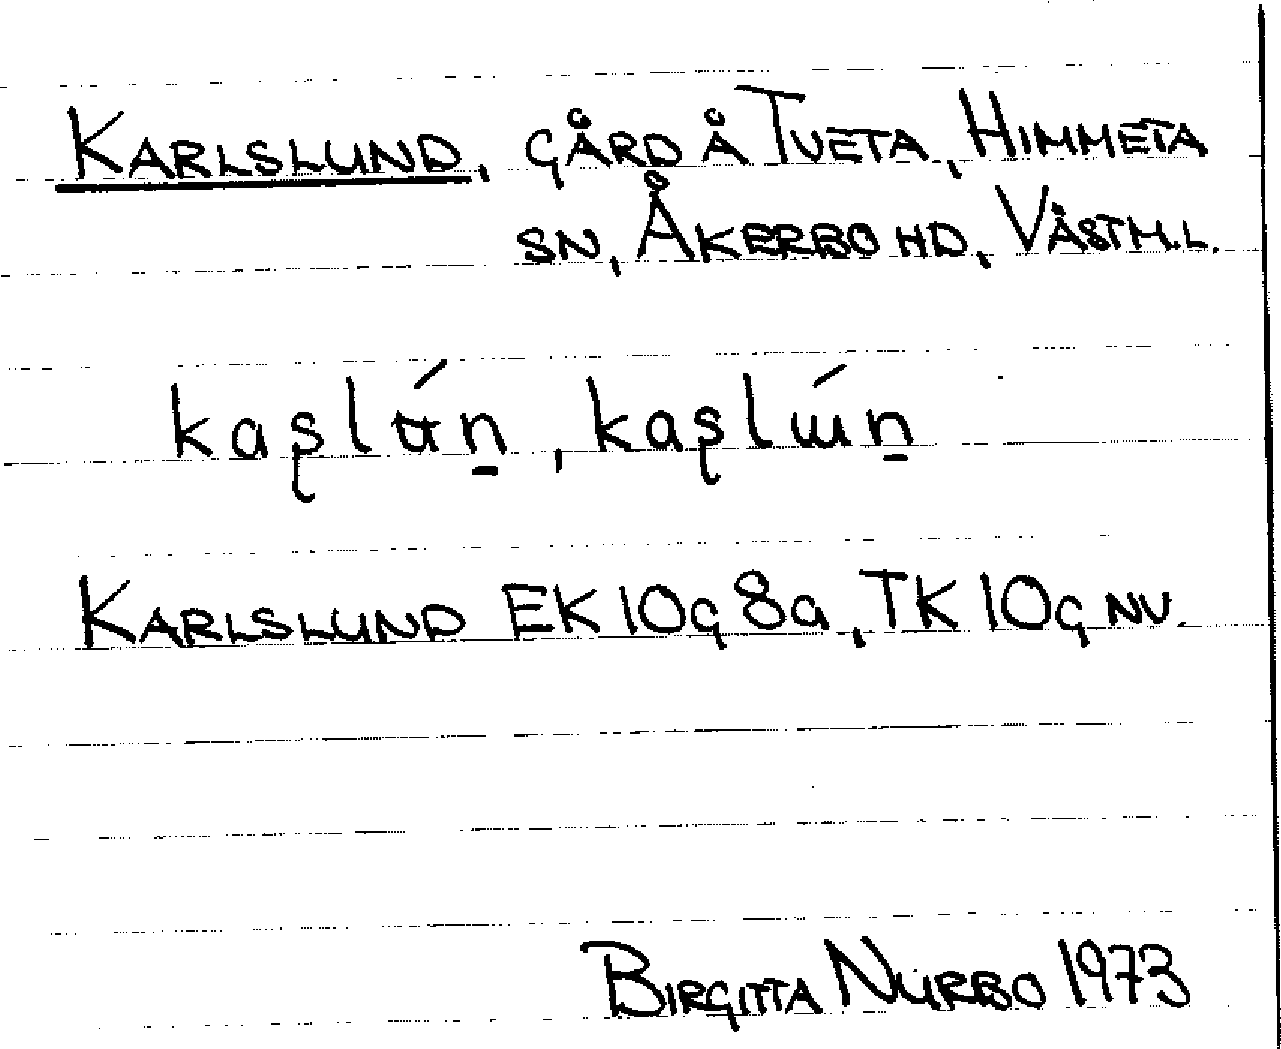 KARLSLUND, GÅRD Å TVETA, HIMMETA
SN, ÅKERBO HD, VÄSTM.L.
KARLSLUND EK 10g 8a, TK 10g NV.
BIRGITTA NYRBO 1973